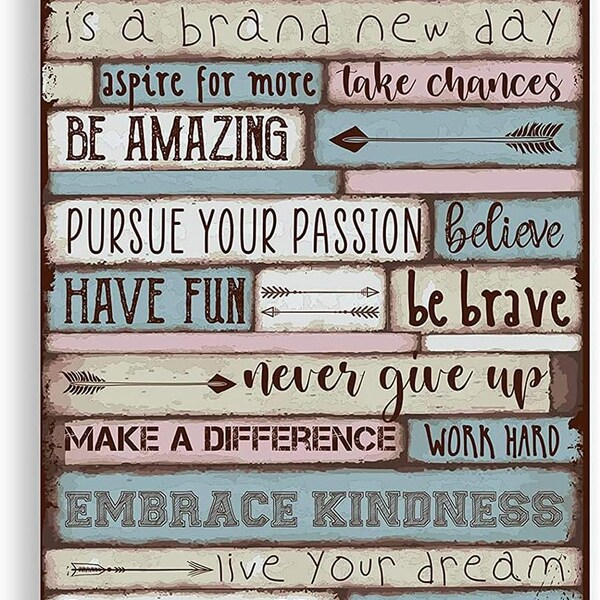 is a brand new day
aspire for more take chances
BE AMAZING
PURSUE YOUR PASSION believe
HAVE FUN be brave
never give up
MAKE A DIFFERENCE WORK HARD
EMBRACE KINDNESS
live your dream